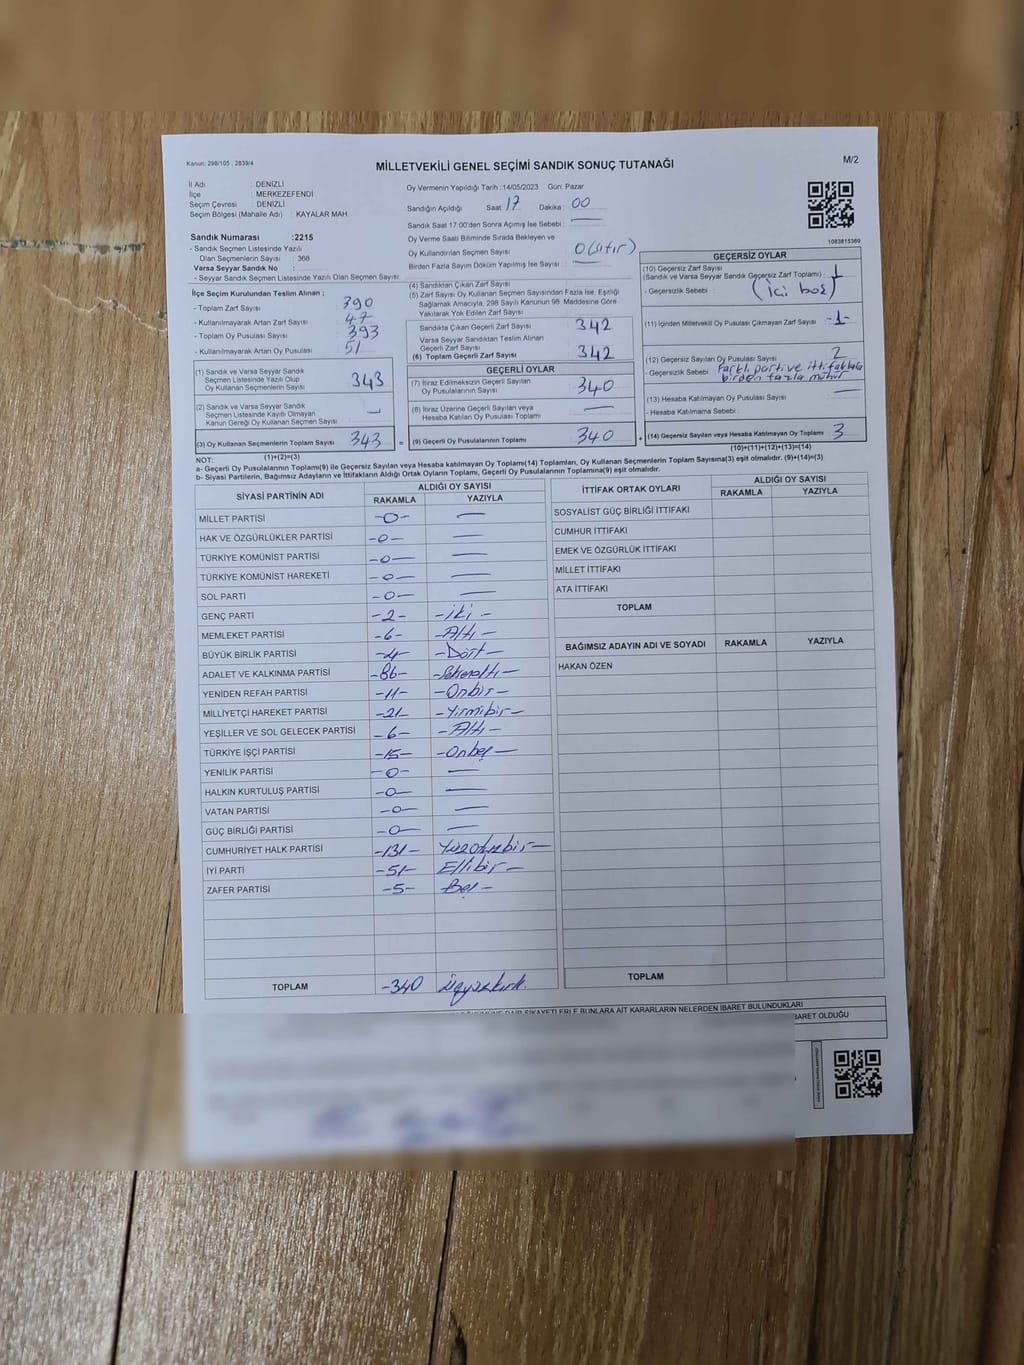 Kanun: 298/105 , 2839/4
MİLLETVEKİLİ GENEL SEÇİMİ SANDIK SONUÇ TUTANAĞI
M/2
İl Adı : DENİZLİ
İlçe : MERKEZEFENDİ
Seçim Çevresi : DENİZLİ
Seçim Bölgesi (Mahalle Adı) : KAYALAR MAH
Sandık Numarası :2215
- Sandık Seçmen Listesinde Yazılı
Olan Seçmenlerin Sayısı : 368
Varsa Seyyar Sandık No :
- Seyyar Sandık Seçmen Listesinde Yazılı Olan Seçmen Sayısı:
Oy Vermenin Yapıldığı Tarih :14/05/2023 Gün: Pazar
Sandığın Açıldığı Saat : 17 Dakika : 00
Sandık Saat 17:00'den Sonra Açılmış İse Sebebi : —
Oy Verme Saati Bitiminde Sırada Bekleyen ve
Oy Kullandırılan Seçmen Sayısı : 0 (sıfır)
Birden Fazla Sayım Döküm Yapılmış İse Sayısı : —
1083815369
İlçe Seçim Kurulundan Teslim Alınan ;
- Toplam Zarf Sayısı : 390
- Kullanılmayarak Artan Zarf Sayısı : 47
- Toplam Oy Pusulası Sayısı : 393
- Kullanılmayarak Artan Oy Pusulası : 51
(1) Sandık ve Varsa Seyyar Sandık
Seçmen Listesinde Yazılı Olup
Oy Kullanan Seçmenlerin Sayısı 343
(2) Sandık ve Varsa Seyyar Sandık
Seçmen Listesinde Kayıtlı Olmayan
Kanun Gereği Oy Kullanan Seçmen Sayısı —
(3) Oy Kullanan Seçmenlerin Toplam Sayısı 343 =
(1)+(2)=(3)
(4) Sandıktan Çıkan Zarf Sayısı
(5) Zarf Sayısı Oy Kullanan Seçmen Sayısından Fazla İse, Eşitliği
Sağlamak Amacıyla, 298 Sayılı Kanunun 98. Maddesine Göre
Yakılarak Yok Edilen Zarf Sayısı
Sandıkta Çıkan Geçerli Zarf Sayısı 342
Varsa Seyyar Sandıktan Teslim Alınan
Geçerli Zarf Sayısı
(6) Toplam Geçerli Zarf Sayısı 342
GEÇERLİ OYLAR
(7) İtiraz Edilmeksizin Geçerli Sayılan
Oy Pusulalarının Sayısı 340
(8) İtiraz Üzerine Geçerli Sayılan veya
Hesaba Katılan Oy Pusulası Toplamı —
(9) Geçerli Oy Pusulalarının Toplamı 340 +
GEÇERSİZ OYLAR
(10) Geçersiz Zarf Sayısı
(Sandık ve Varsa Seyyar Sandık Geçersiz Zarf Toplamı) : 1
- Geçersizlik Sebebi : (içi boş)
(11) İçinden Milletvekili Oy Pusulası Çıkmayan Zarf Sayısı -1-
(12) Geçersiz Sayılan Oy Pusulası Sayısı 2
- Geçersizlik Sebebi : Farklı parti ve ittifaklara
birden fazla mühür
(13) Hesaba Katılmayan Oy Pusulası Sayısı —
- Hesaba Katılmama Sebebi :
(14) Geçersiz Sayılan veya Hesaba Katılmayan Oy Toplamı 3
(10)+(11)+(12)+(13)=(14)
NOT:
a- Geçerli Oy Pusulalarının Toplamı(9) ile Geçersiz Sayılan veya Hesaba katılmayan Oy Toplam(14) Toplamları, Oy Kullanan Seçmenlerin Toplam Sayısına(3) eşit olmalıdır. (9)+(14)=(3)
b- Siyasi Partilerin, Bağımsız Adayların ve İttifakların Aldığı Ortak Oyların Toplamı, Geçerli Oy Pusulalarının Toplamına(9) eşit olmalıdır.
SİYASİ PARTİNİN ADI ALDIĞI OY SAYISI
RAKAMLA YAZIYLA
MİLLET PARTİSİ -0- —
HAK VE ÖZGÜRLÜKLER PARTİSİ -0- —
TÜRKİYE KOMÜNİST PARTİSİ -0- —
TÜRKİYE KOMÜNİST HAREKETİ -0- —
SOL PARTİ -0- —
GENÇ PARTİ -2- -İki-
MEMLEKET PARTİSİ -6- -Altı-
BÜYÜK BİRLİK PARTİSİ -4- -Dört-
ADALET VE KALKINMA PARTİSİ -86- -Seksenaltı-
YENİDEN REFAH PARTİSİ -11- -Onbir-
MİLLİYETÇİ HAREKET PARTİSİ -21- -Yirmibir-
YEŞİLLER VE SOL GELECEK PARTİSİ -6- -Altı-
TÜRKİYE İŞÇİ PARTİSİ -15- -Onbeş-
YENİLİK PARTİSİ -0- —
HALKIN KURTULUŞ PARTİSİ -0- —
VATAN PARTİSİ -0- —
GÜÇ BİRLİĞİ PARTİSİ -0- —
CUMHURİYET HALK PARTİSİ -131- Yüzotuzbir-
İYİ PARTİ -51- Ellibir-
ZAFER PARTİSİ -5- Beş-
TOPLAM -340 Üçyüzkırk.
İTTİFAK ORTAK OYLARI ALDIĞI OY SAYISI
RAKAMLA YAZIYLA
SOSYALİST GÜÇ BİRLİĞİ İTTİFAKI
CUMHUR İTTİFAKI
EMEK VE ÖZGÜRLÜK İTTİFAKI
MİLLET İTTİFAKI
ATA İTTİFAKI
TOPLAM
BAĞIMSIZ ADAYIN ADI VE SOYADI RAKAMLA YAZIYLA
HAKAN ÖZEN
TOPLAM
DAİR ŞİKAYETLERLE BUNLARA AİT KARARLARIN NELERDEN İBARET BULUNDUKLARI
İBARET OLDUĞU